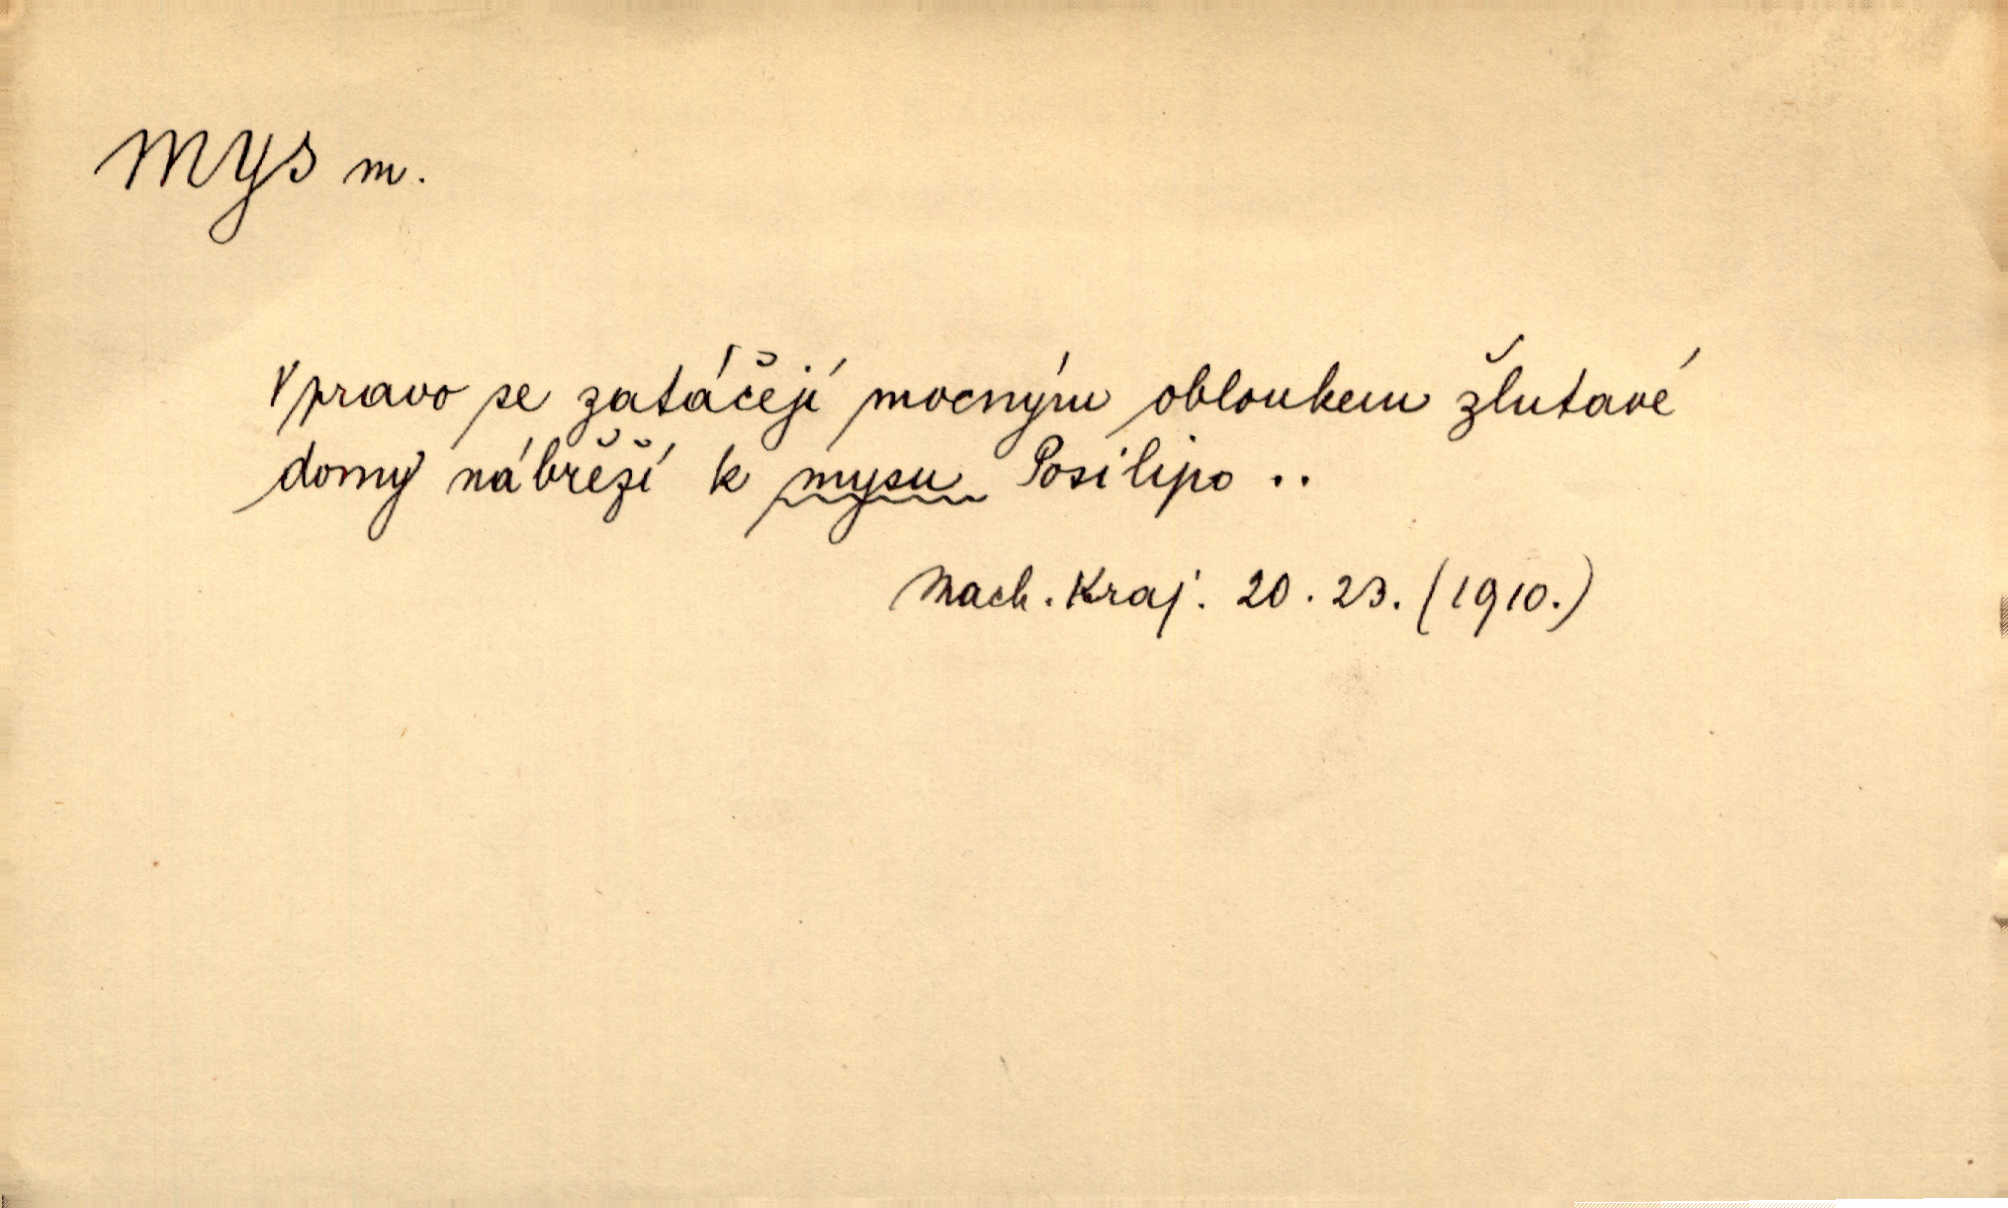 mys m.
Vpravo se zatáčejí mocným obloukem žlutavé
domy nábřeží k mysu Posilipo ..
Mach. Kraj. 20. 23. (1910.)